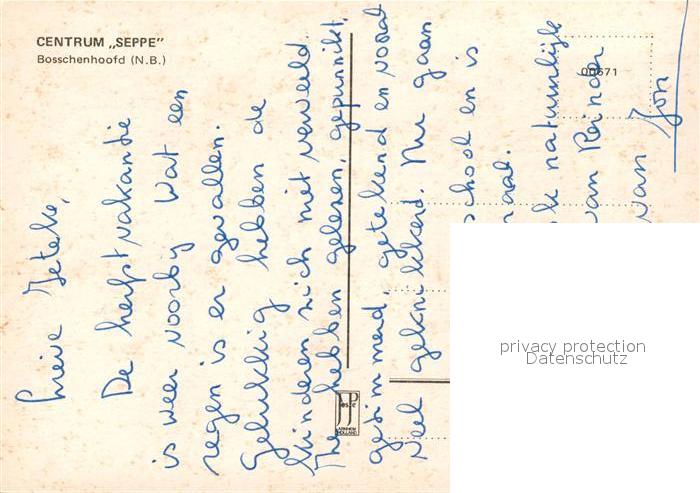 CENTRUM „SEPPE”
Bosschenhoofd (N.B.)
00671
Lieve Jeteke,
De herfstvakantie
is weer voorbij. Wat een
regen is er gevallen.
Gelukkig hebben de
kinderen zich niet verveeld.
The hebben gelezen, gepunnikt,
getimmerd, getekend en vooral
veel geknikkerd. Nu gaan
school en is
natuurlijk
van Reinder
van Jon
privacy protection
Datenschutz
JosPé
ARNHEM
HOLLAND